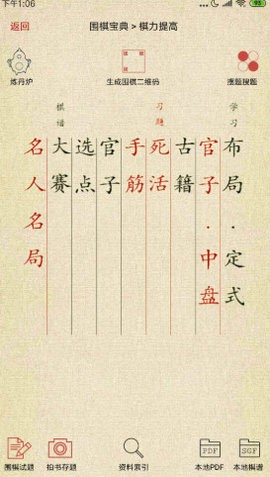 下午1:06
返回
围棋宝典 > 棋力提高
炼丹炉
生成围棋二维码
搜题
学习
布局·定式
官子·中盘
古籍
习题
死活
手筋
官子
选点
棋谱
大赛
名人名局
围棋试题
拍书存题
资料索引
PDF
本地PDF
SGF
本地棋谱